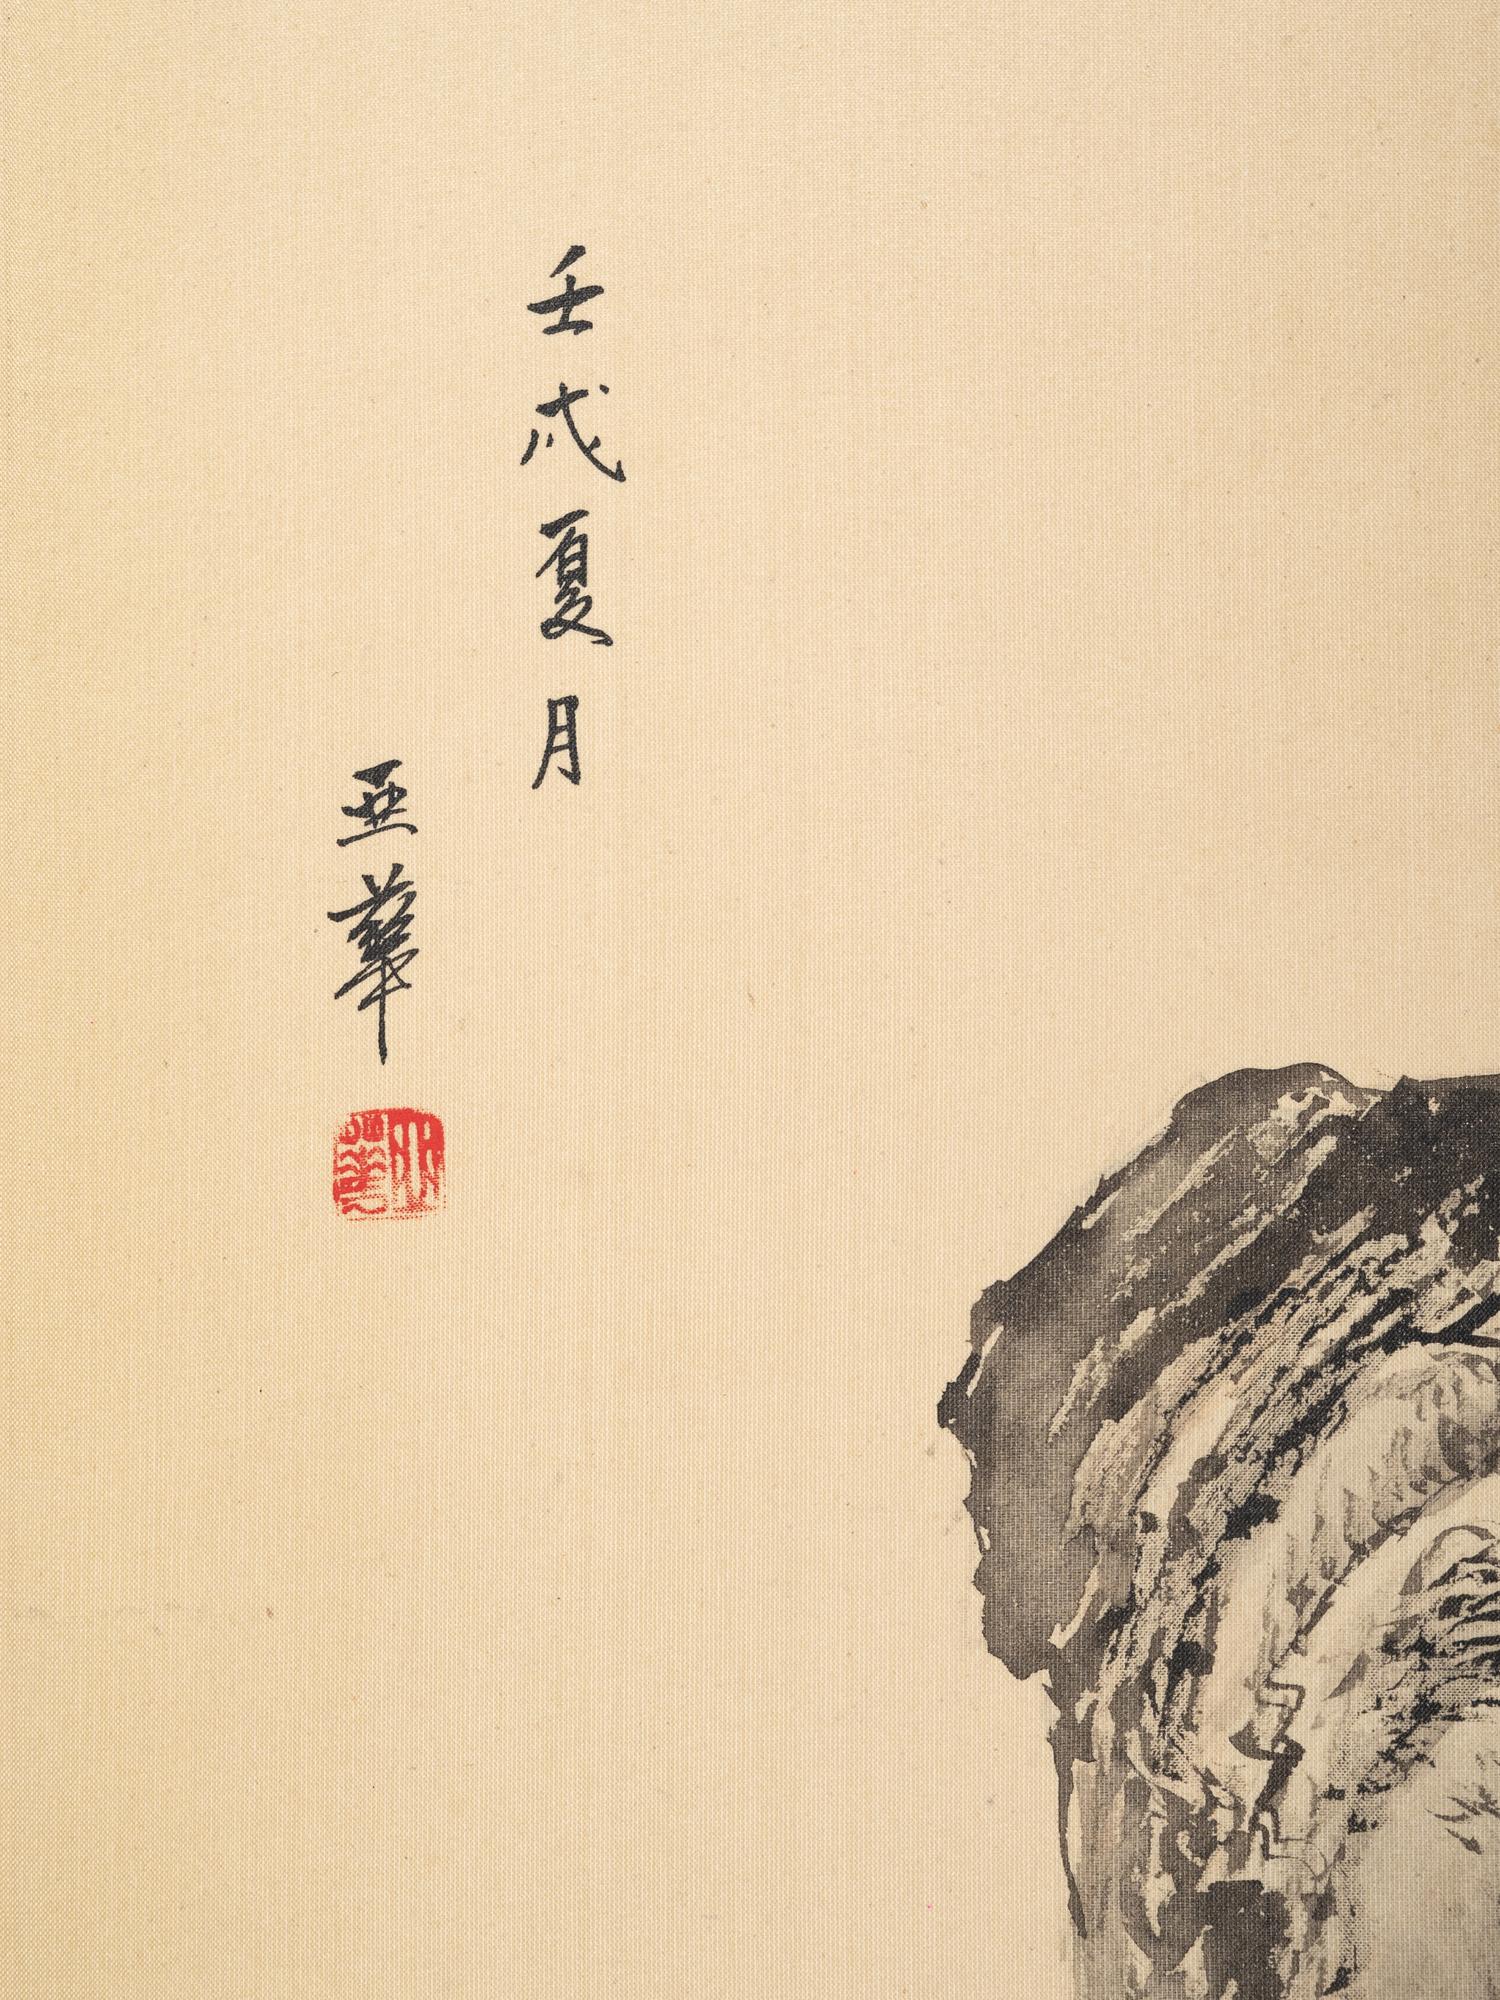 壬戌夏月
亞華